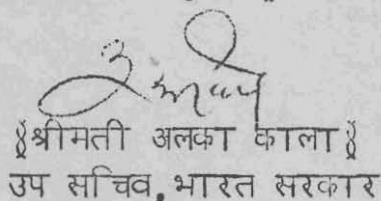 ॥श्रीमती अलका काला॥
उप सचिव, भारत सरकार